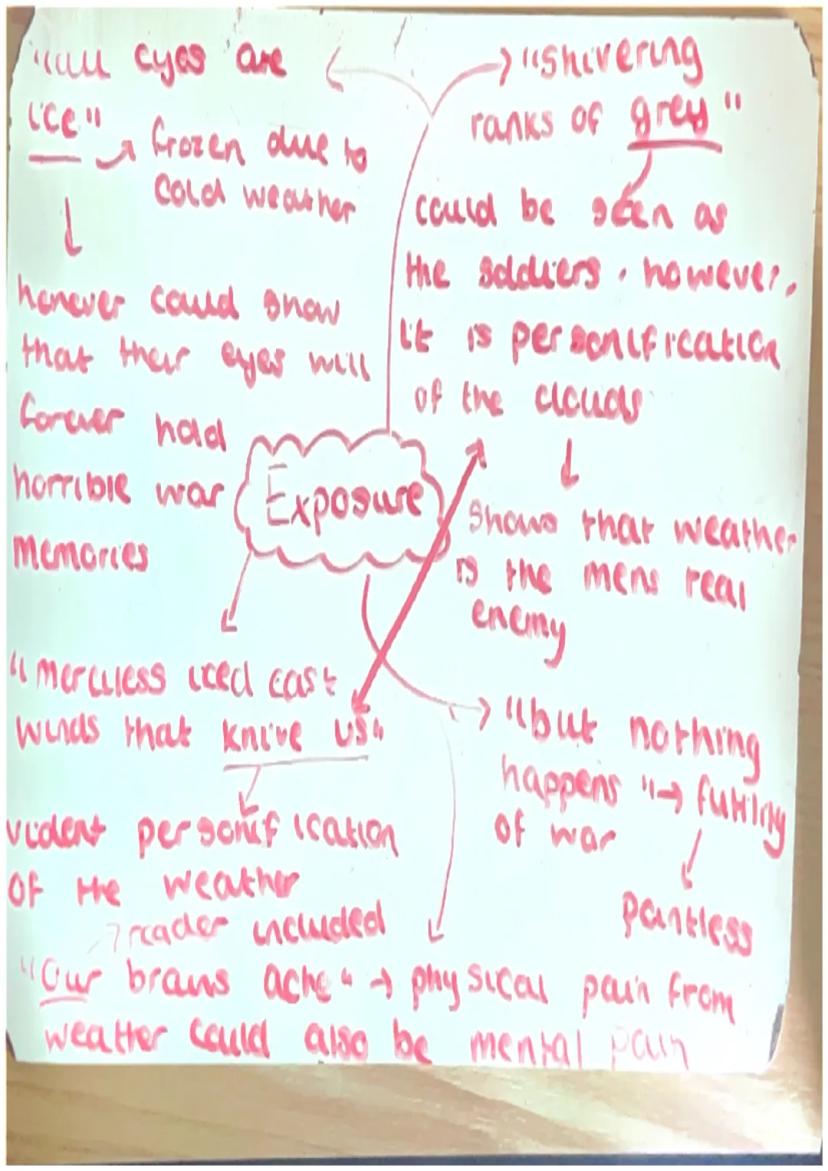 "all eyes are
ice" → frozen due to
cold weather
↓
however could show
that their eyes will
forever hold
horrible war
memories
→ "shivering
ranks of grey"
could be seen as
the soldiers. however,
it is personification
of the clouds
↓
shows that weather
is the mens real
enemy
Exposure
"merciless iced east
winds that knive us"
violent personification
of the weather
→ "but nothing
happens" → futility
of war
pointless
→ reader included
"Our brains ache" → physical pain from
weather could also be mental pain